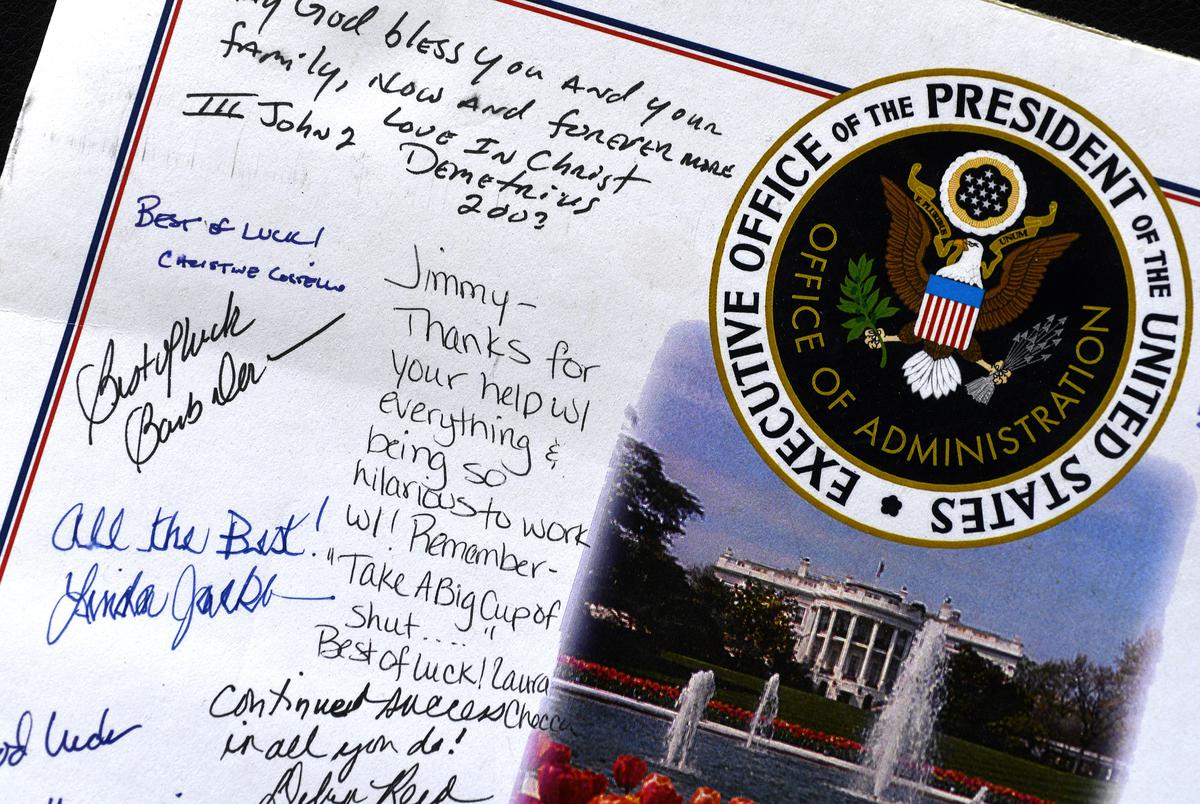 God bless you and your
family, now and forever more
III John 2 Love In Christ
Demetrius
2003
Best of Luck!
Christine Costello
Best of luck
Barb
All the Best!
Linda
Jimmy-
Thanks for
your help w/
everything &
being so
hilarious to work
w/! Remember-
"Take A Big Cup of
shut...."
Best of luck! Laura
Continued success
in all you do!
Debra Reed
EXECUTIVE OFFICE OF THE PRESIDENT OF THE UNITED STATES
OFFICE OF ADMINISTRATION
E PLURIBUS UNUM